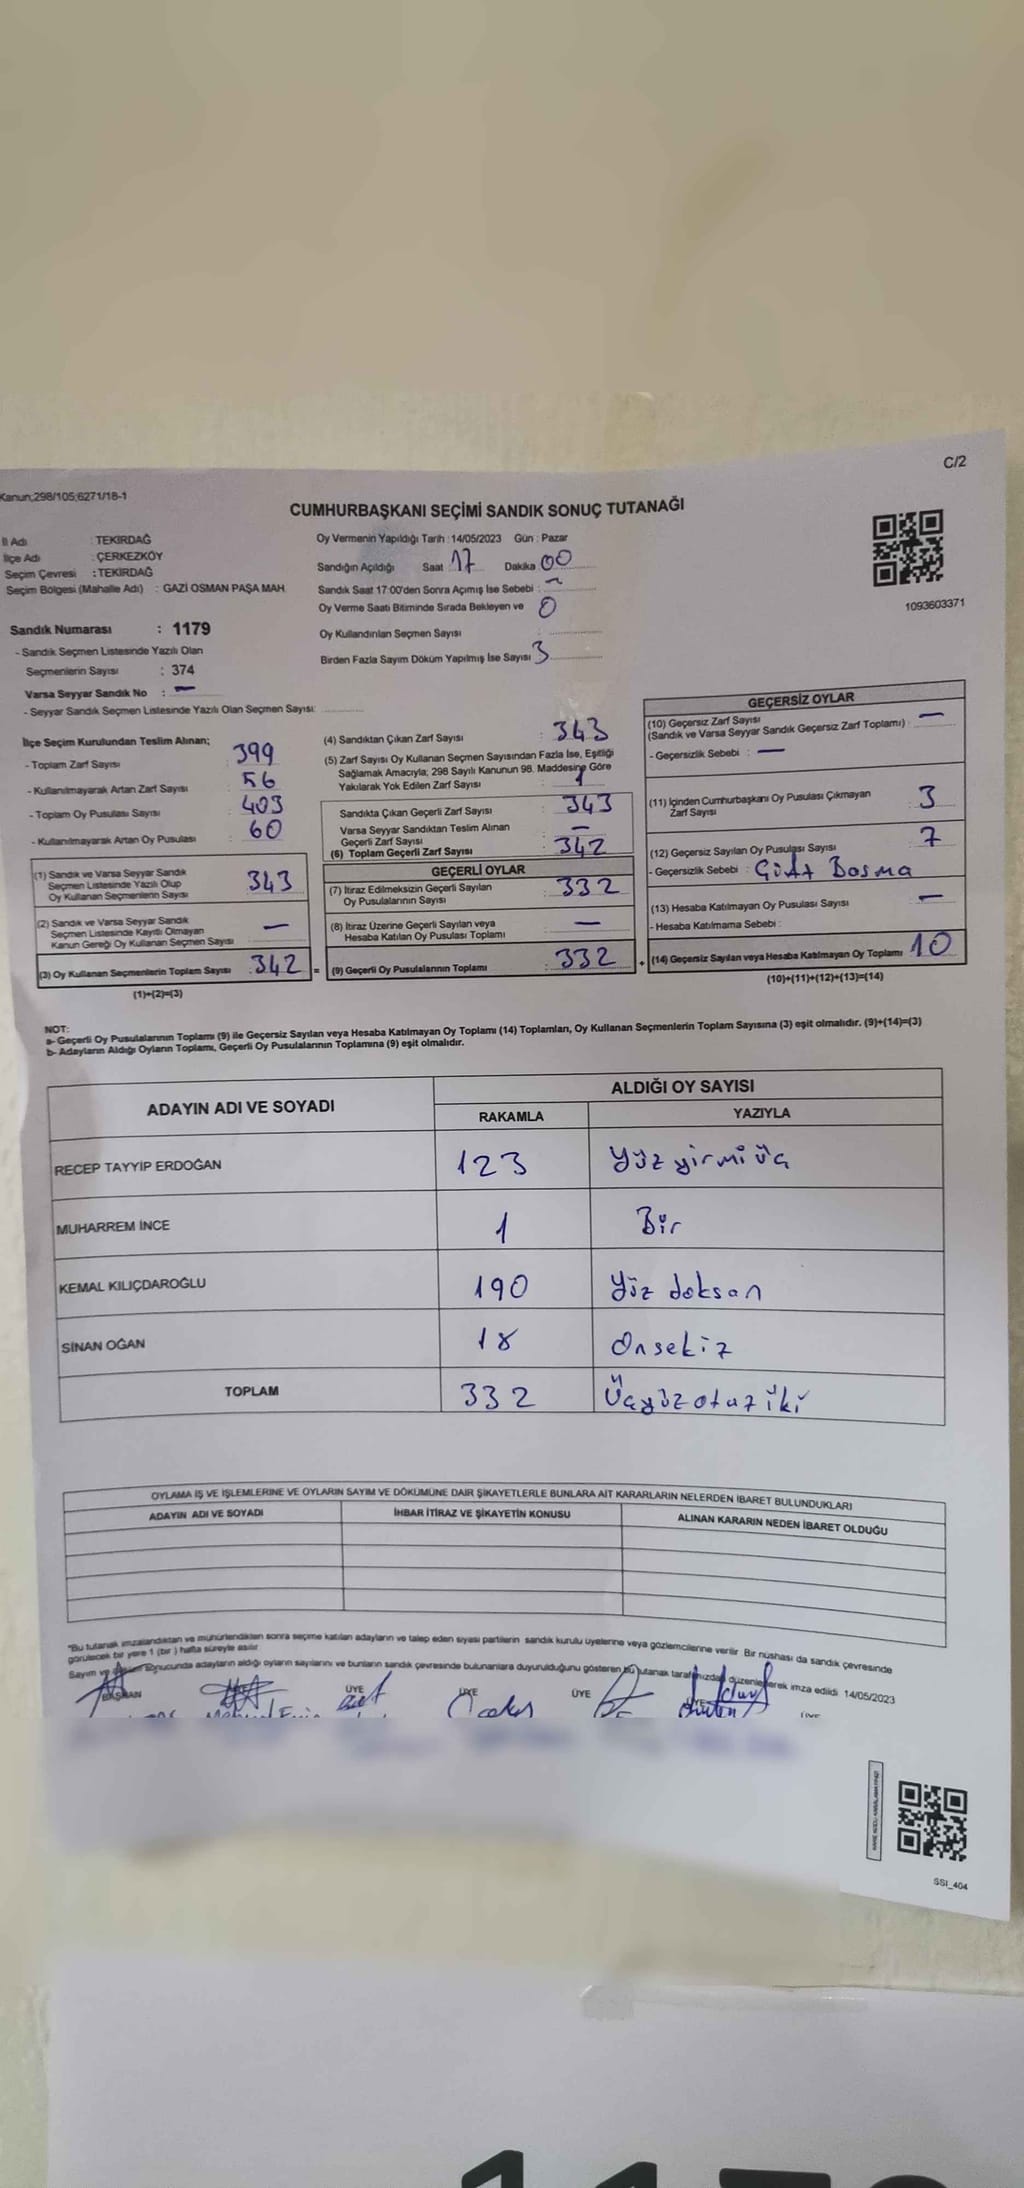 C/2
Kanun;298/105;6271/18-1
CUMHURBAŞKANI SEÇİMİ SANDIK SONUÇ TUTANAĞI
İl Adı : TEKİRDAĞ
İlçe Adı : ÇERKEZKÖY
Seçim Çevresi : TEKİRDAĞ
Seçim Bölgesi (Mahalle Adı) : GAZİ OSMAN PAŞA MAH.
Sandık Numarası : 1179
- Sandık Seçmen Listesinde Yazılı Olan
Seçmenlerin Sayısı : 374
Varsa Seyyar Sandık No : —
- Seyyar Sandık Seçmen Listesinde Yazılı Olan Seçmen Sayısı:
Oy Vermenin Yapıldığı Tarih : 14/05/2023 Gün : Pazar
Sandığın Açıldığı Saat 17 Dakika 00
Sandık Saat 17:00'den Sonra Açımış İse Sebebi : ~
Oy Verme Saati Bitiminde Sırada Bekleyen ve 0
Oy Kullandırılan Seçmen Sayısı :
Birden Fazla Sayım Döküm Yapılmış İse Sayısı 3
1093603371
İlçe Seçim Kurulundan Teslim Alınan;
- Toplam Zarf Sayısı : 399
- Kullanılmayarak Artan Zarf Sayısı : 56
- Toplam Oy Pusulası Sayısı : 403
- Kullanılmayarak Artan Oy Pusulası : 60
(1) Sandık ve Varsa Seyyar Sandık
Seçmen Listesinde Yazılı Olup
Oy Kullanan Seçmenlerin Sayısı : 343
(2) Sandık ve Varsa Seyyar Sandık
Seçmen Listesinde Kayıtlı Olmayan
Kanun Gereği Oy Kullanan Seçmen Sayısı —
(3) Oy Kullanan Seçmenlerin Toplam Sayısı : 342 =
(1)+(2)=(3)
(4) Sandıktan Çıkan Zarf Sayısı : 343
(5) Zarf Sayısı Oy Kullanan Seçmen Sayısından Fazla İse, Eşitliği
Sağlamak Amacıyla; 298 Sayılı Kanunun 98. Maddesine Göre
Yakılarak Yok Edilen Zarf Sayısı : 1
Sandıkta Çıkan Geçerli Zarf Sayısı : 343
Varsa Seyyar Sandıktan Teslim Alınan
Geçerli Zarf Sayısı : —
(6) Toplam Geçerli Zarf Sayısı : 342
GEÇERLİ OYLAR
(7) İtiraz Edilmeksizin Geçerli Sayılan
Oy Pusulalarının Sayısı : 332
(8) İtiraz Üzerine Geçerli Sayılan veya
Hesaba Katılan Oy Pusulası Toplamı : —
(9) Geçerli Oy Pusulalarının Toplamı : 332 +
GEÇERSİZ OYLAR
(10) Geçersiz Zarf Sayısı
(Sandık ve Varsa Seyyar Sandık Geçersiz Zarf Toplamı) : —
- Geçersizlik Sebebi : —
(11) İçinden Cumhurbaşkanı Oy Pusulası Çıkmayan
Zarf Sayısı : 3
(12) Geçersiz Sayılan Oy Pusulası Sayısı : 7
- Geçersizlik Sebebi : Çift Basma
(13) Hesaba Katılmayan Oy Pusulası Sayısı : —
- Hesaba Katılmama Sebebi :
(14) Geçersiz Sayılan veya Hesaba Katılmayan Oy Toplamı : 10
(10)+(11)+(12)+(13)=(14)
NOT:
a- Geçerli Oy Pusulalarının Toplamı (9) ile Geçersiz Sayılan veya Hesaba Katılmayan Oy Toplamı (14) Toplamları, Oy Kullanan Seçmenlerin Toplam Sayısına (3) eşit olmalıdır. (9)+(14)=(3)
b- Adayların Aldığı Oyların Toplamı, Geçerli Oy Pusulalarının Toplamına (9) eşit olmalıdır.
ADAYIN ADI VE SOYADI ALDIĞI OY SAYISI
RAKAMLA YAZIYLA
RECEP TAYYİP ERDOĞAN 123 Yüz yirmi üç
MUHARREM İNCE 1 Bir
KEMAL KILIÇDAROĞLU 190 Yüz doksan
SİNAN OĞAN 18 Onsekiz
TOPLAM 332 Üçyüzotuz iki
OYLAMA İŞ VE İŞLEMLERİNE VE OYLARIN SAYIM VE DÖKÜMÜNE DAİR ŞİKAYETLERLE BUNLARA AİT KARARLARIN NELERDEN İBARET BULUNDUKLARI
ADAYIN ADI VE SOYADI İHBAR İTİRAZ VE ŞİKAYETİN KONUSU ALINAN KARARIN NEDEN İBARET OLDUĞU
"Bu tutanak imzalandıktan ve mühürlendikten sonra seçime katılan adayların ve talep eden siyasi partilerin sandık kurulu üyelerine veya gözlemcilerine verilir. Bir nüshası da sandık çevresinde
görülecek bir yere 1 (bir) hafta süreyle asılır.
Sayım ve döküm sonucunda adayların aldığı oyların sayılarını ve bunların sandık çevresinde bulunanlara duyurulduğunu gösteren bu tutanak tarafımızdan düzenlenerek imza edildi. 14/05/2023
BAŞKAN ÜYE ÜYE ÜYE ÜYE ÜYE
SSI_404